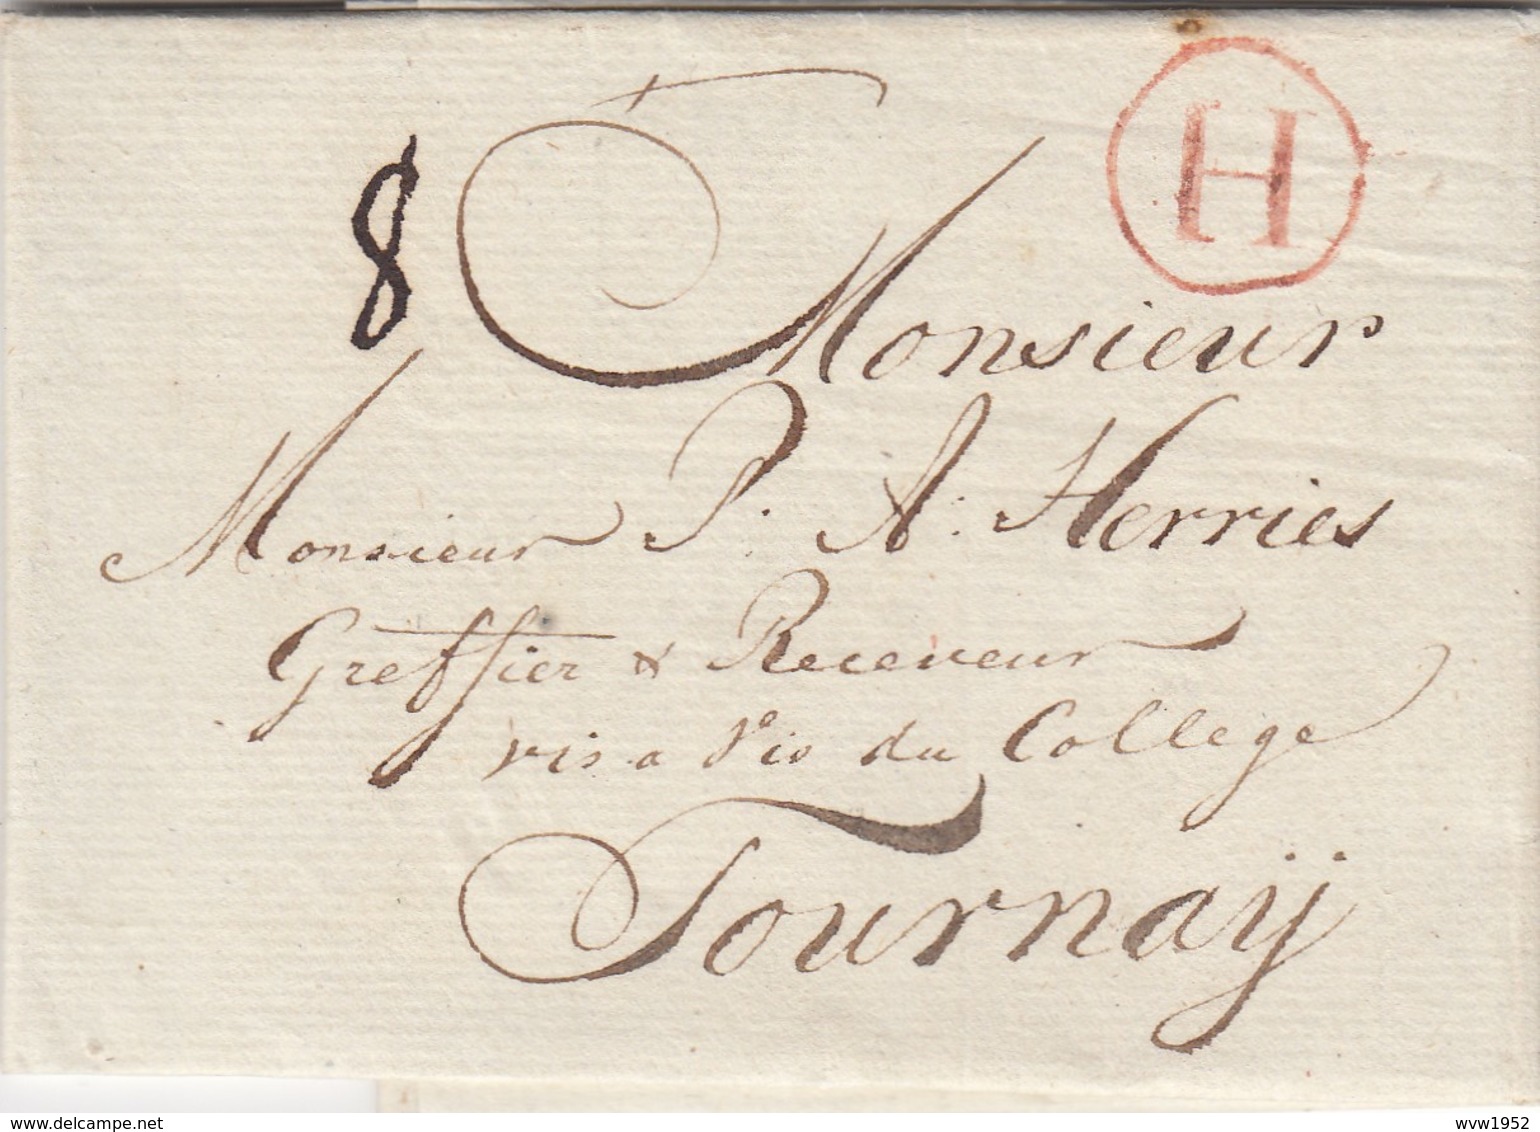 H
8
Monsieur
Monsieur P. A. Herries
Greffier & Receveur
vis a Vis du College
Tournaÿ
www.delcampe.net
wvw1952